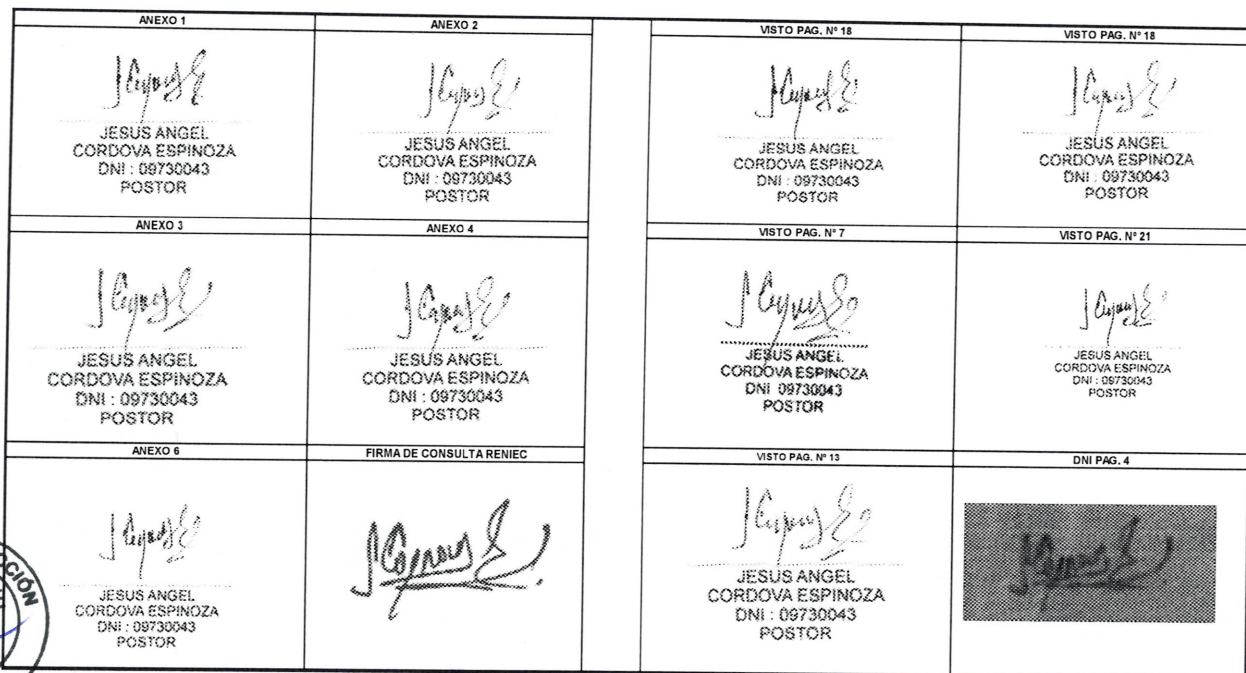 ANEXO 1
JESUS ANGEL
CORDOVA ESPINOZA
DNI : 09730043
POSTOR
ANEXO 2
JESUS ANGEL
CORDOVA ESPINOZA
DNI : 09730043
POSTOR
VISTO PAG. Nº 18
JESUS ANGEL
CORDOVA ESPINOZA
DNI : 09730043
POSTOR
VISTO PAG. Nº 18
JESUS ANGEL
CORDOVA ESPINOZA
DNI : 09730043
POSTOR
ANEXO 3
JESUS ANGEL
CORDOVA ESPINOZA
DNI : 09730043
POSTOR
ANEXO 4
JESUS ANGEL
CORDOVA ESPINOZA
DNI : 09730043
POSTOR
VISTO PAG. Nº 7
JESUS ANGEL
CORDOVA ESPINOZA
DNI 09730043
POSTOR
VISTO PAG. Nº 21
JESUS ANGEL
CORDOVA ESPINOZA
DNI : 09730043
POSTOR
ANEXO 6
JESUS ANGEL
CORDOVA ESPINOZA
DNI : 09730043
POSTOR
FIRMA DE CONSULTA RENIEC
VISTO PAG. Nº 13
JESUS ANGEL
CORDOVA ESPINOZA
DNI : 09730043
POSTOR
DNI PAG. 4